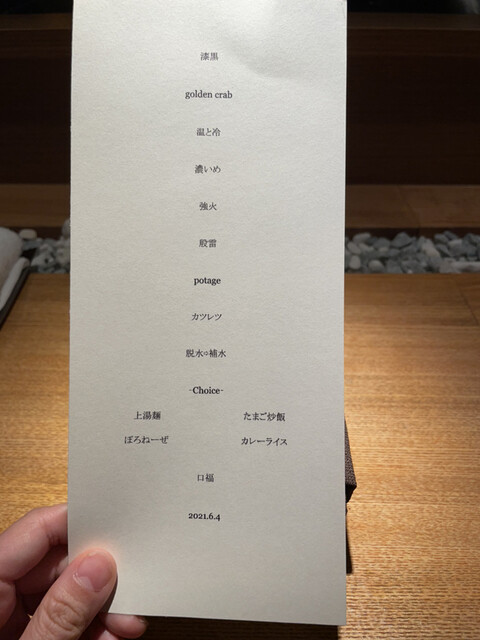 漆黒
golden crab
温と冷
濃いめ
強火
殷雷
potage
カツレツ
脱水⇔補水
-Choice-
上湯麺 たまご炒飯
ぼろねーぜ カレーライス
口福
2021.6.4